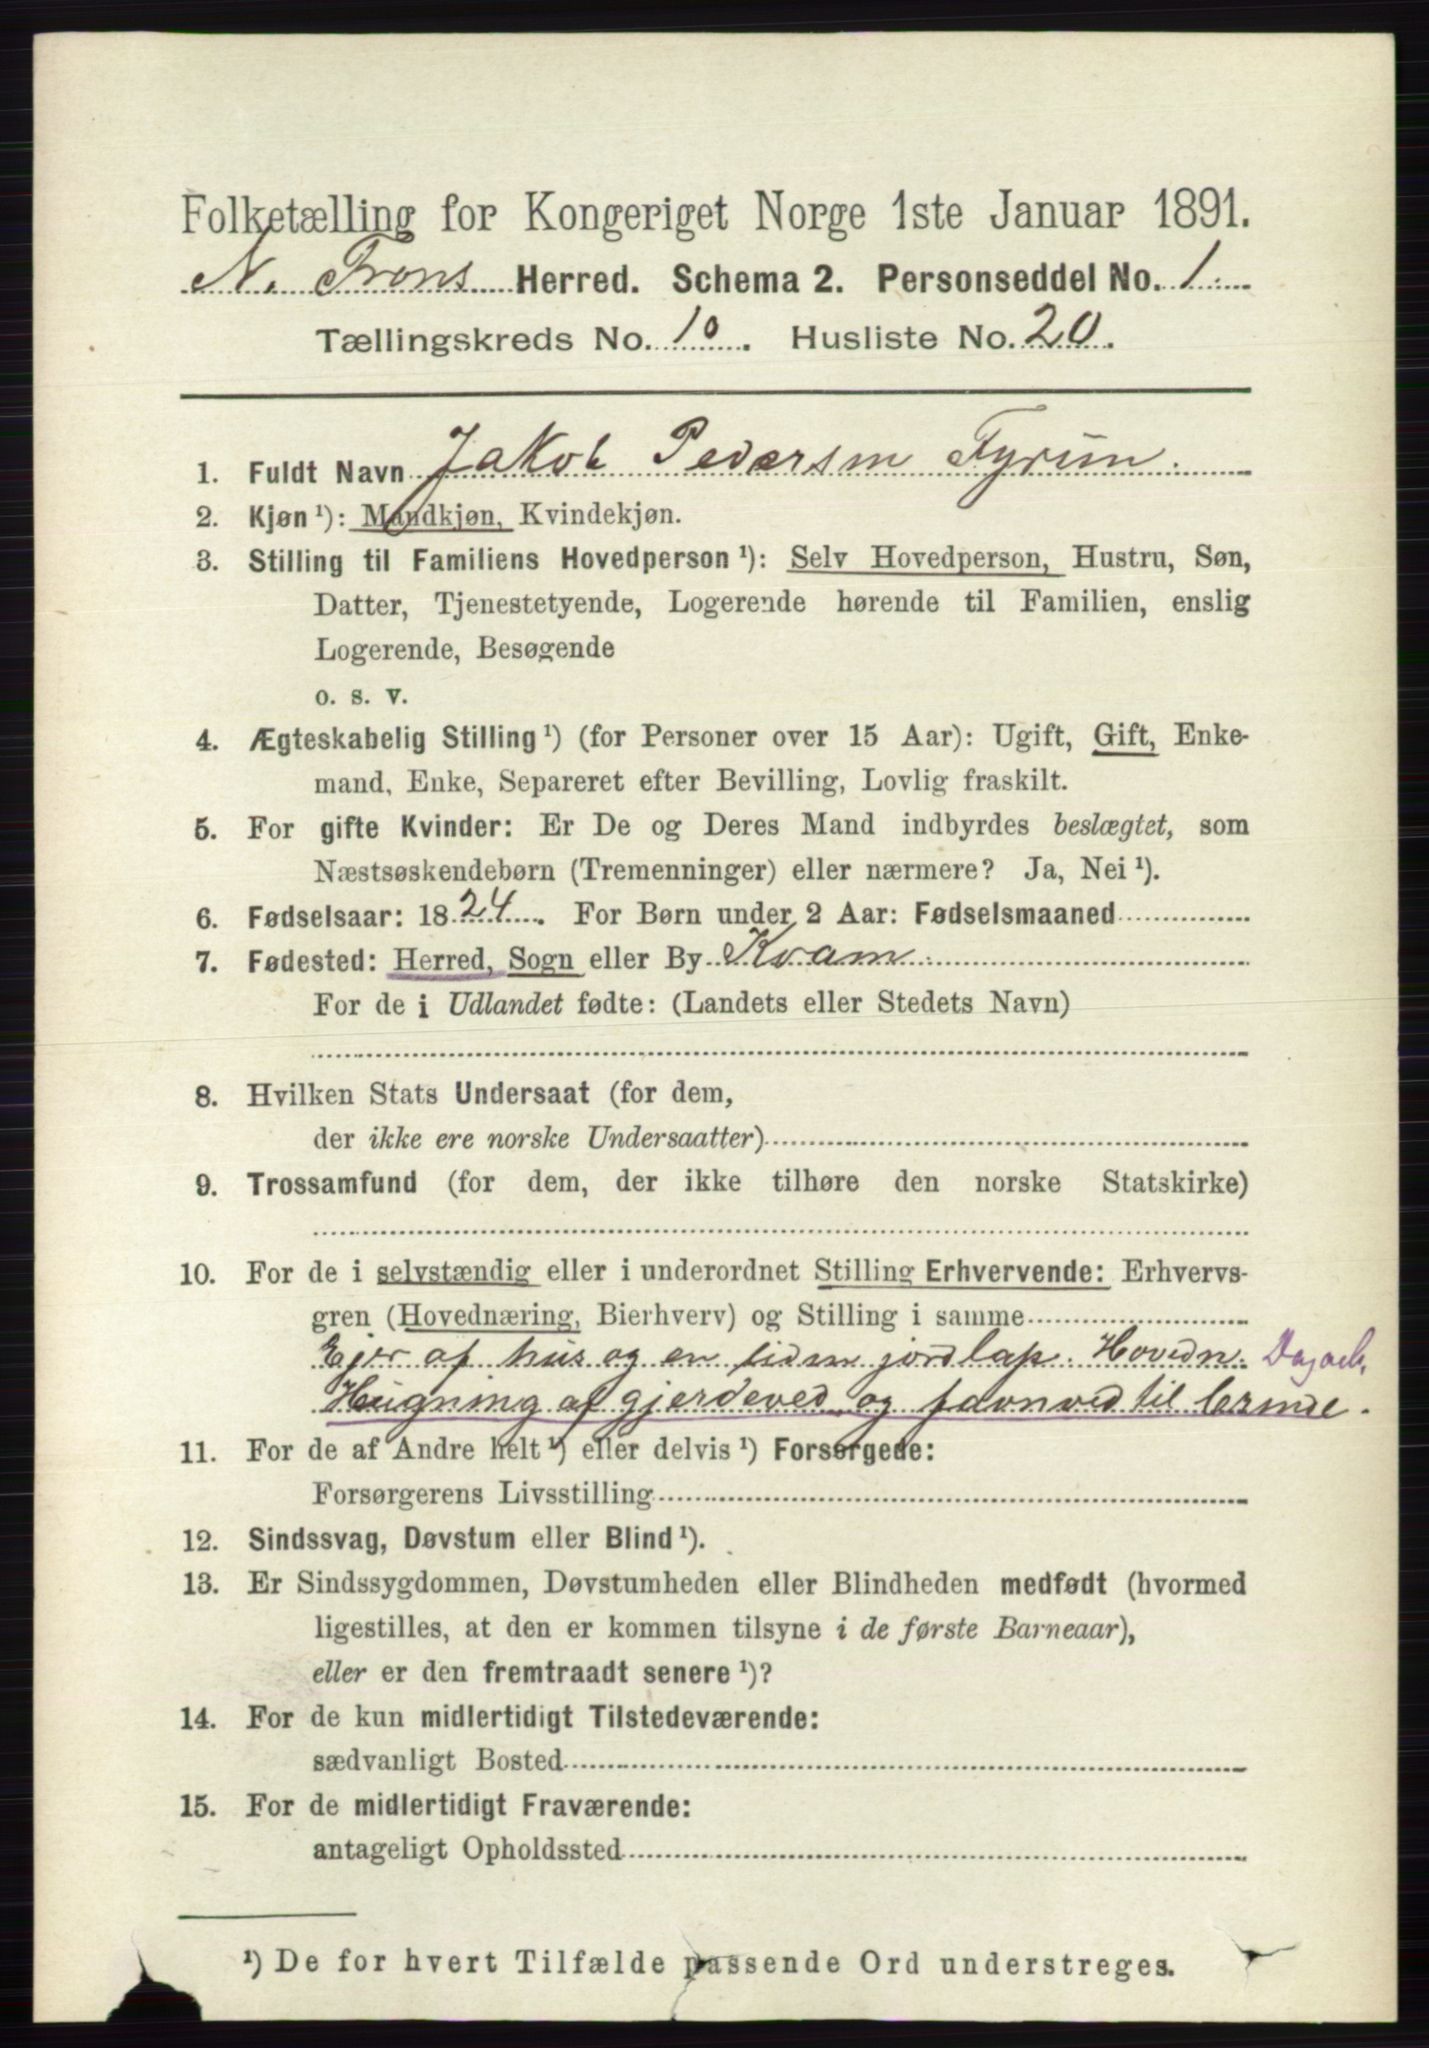 Folketælling for Kongeriget Norge 1ste Januar 1891.
N. Frons Herred. Schema 2. Personseddel No. 1.
Tællingskreds No. 10. Husliste No. 20.
1. Fuldt Navn Jakob Pedersen
2. Kjøn ¹): Mandkjøn, Kvindekjøn.
3. Stilling til Familiens Hovedperson ¹): Selv Hovedperson, Hustru, Søn,
Datter, Tjenestetyende, Logerende hørende til Familien, enslig
Logerende, Besøgende
o. s. v.
4. Ægteskabelig Stilling ¹) (for Personer over 15 Aar): Ugift, Gift, Enke-
mand, Enke, Separeret efter Bevilling, Lovlig fraskilt.
5. For gifte Kvinder: Er De og Deres Mand indbyrdes beslægtet, som
Næstsøskendebørn (Tremenninger) eller nærmere? Ja, Nei ¹).
6. Fødselsaar: 1824. For Børn under 2 Aar: Fødselsmaaned
7. Fødested: Herred, Sogn eller By Kvam.
For de i Udlandet fødte: (Landets eller Stedets Navn)
8. Hvilken Stats Undersaat (for dem,
der ikke ere norske Undersaatter)
9. Trossamfund (for dem, der ikke tilhøre den norske Statskirke)
10. For de i selvstændig eller i underordnet Stilling Erhvervende: Erhvervs-
gren (Hovednæring, Bierhverv) og Stilling i samme
Ejer af hus og en liden jordlap. Hovedn.
Hugning af gjerdeved og favnved til
11. For de af Andre helt ¹) eller delvis ¹) Forsørgede:
Forsørgerens Livsstilling
12. Sindssvag, Døvstum eller Blind ¹).
13. Er Sindssygdommen, Døvstumheden eller Blindheden medfødt (hvormed
ligestilles, at den er kommen tilsyne i de første Barneaar),
eller er den fremtraadt senere ¹)?
14. For de kun midlertidigt Tilstedeværende:
sædvanligt Bosted
15. For de midlertidigt Fraværende:
antageligt Opholdssted
¹) De for hvert Tilfælde passende Ord understreges.